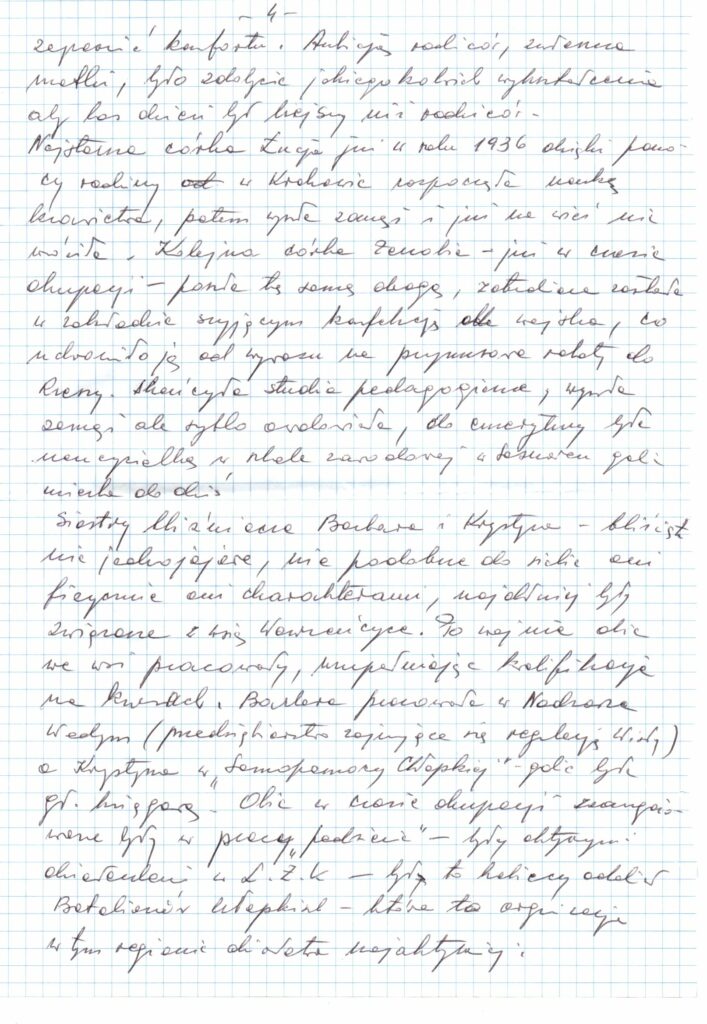 - 4 -
zapewnić komfortu. Ambicją rodziców, zwłaszcza
matki, było zdobycie jakiegokolwiek wykształcenia
aby los dzieci był lżejszy niż rodziców.
Najstarsza córka Łucja już w roku 1936 dzięki pomo-
cy rodziny w Krakowie rozpoczęła naukę
krawiectwa, potem wyszła zamąż i już na wieś nie
wróciła. Kolejna córka Zenobia - już w czasie
okupacji - poszła tą samą drogą, zatrudniona została
w zakładzie szyjącym konfekcję dla wojska, co
uchroniło ją od wywozu na przymusowe roboty do
Rzeszy. Skończyła studia pedagogiczne, wyszła
zamąż ale szybko owdowiała, do emerytury była
nauczycielką w szkole zawodowej w Sosnowcu gdzie
mieszka do dziś
Siostry bliźniacze Barbara i Krystyna - bliźnięta
nie jednojajowe, nie podobne do siebie ani
fizycznie ani charakterami, najdłużej były
związane z wsią Wawrzeńczyce. Po wojnie obie
we wsi pracowały, uzupełniając kwalifikacje
na kursach. Barbara pracowała w Nadzorze
Wodnym (przedsiębiorstwo zajmujące się regulacją Wisły)
a Krystyna w „Samopomocy Chłopskiej" - gdzie była
gł. księgową. Obie w czasie okupacji zaangażo-
wane były w pracę „podziemia" - były aktywnymi
działaczkami w L.Z.K - był to kobiecy oddział
Batalionów Chłopskich - która to organizacja
w tym regionie działała najaktywniej.